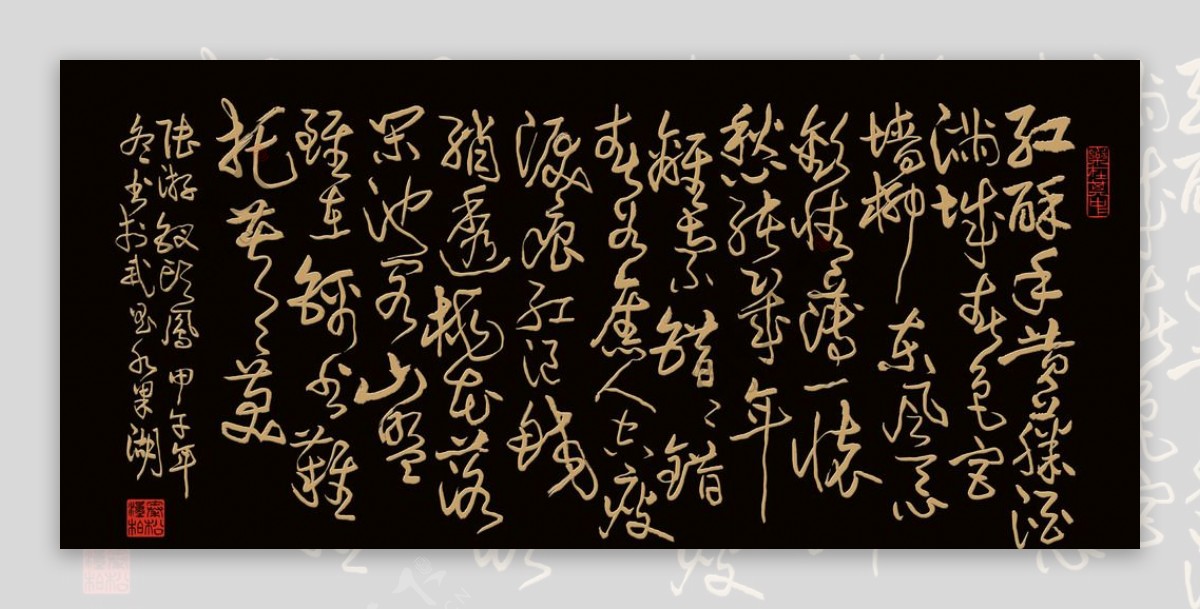 红酥手黄縢酒
满城春色宫
墙柳东风恶
欢情薄一怀
愁绪几年
離索错々错
春如舊人空瘦
泪痕红浥鲛
绡透桃花落
闲池阁山盟
雖在锦书難
托莫々莫
陆游钗头鳳 甲午年
冬书於武昌水果湖